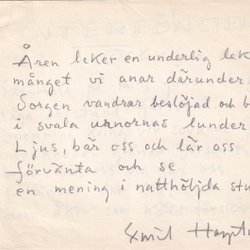 Åren leker en underlig lek
månget vi anar därunder
Sorgen vandrar beslöjad och b
i svala urnornas lunder
Ljus, bär oss och lär oss
förvänta och se
en mening i natthöljda stu
Emil